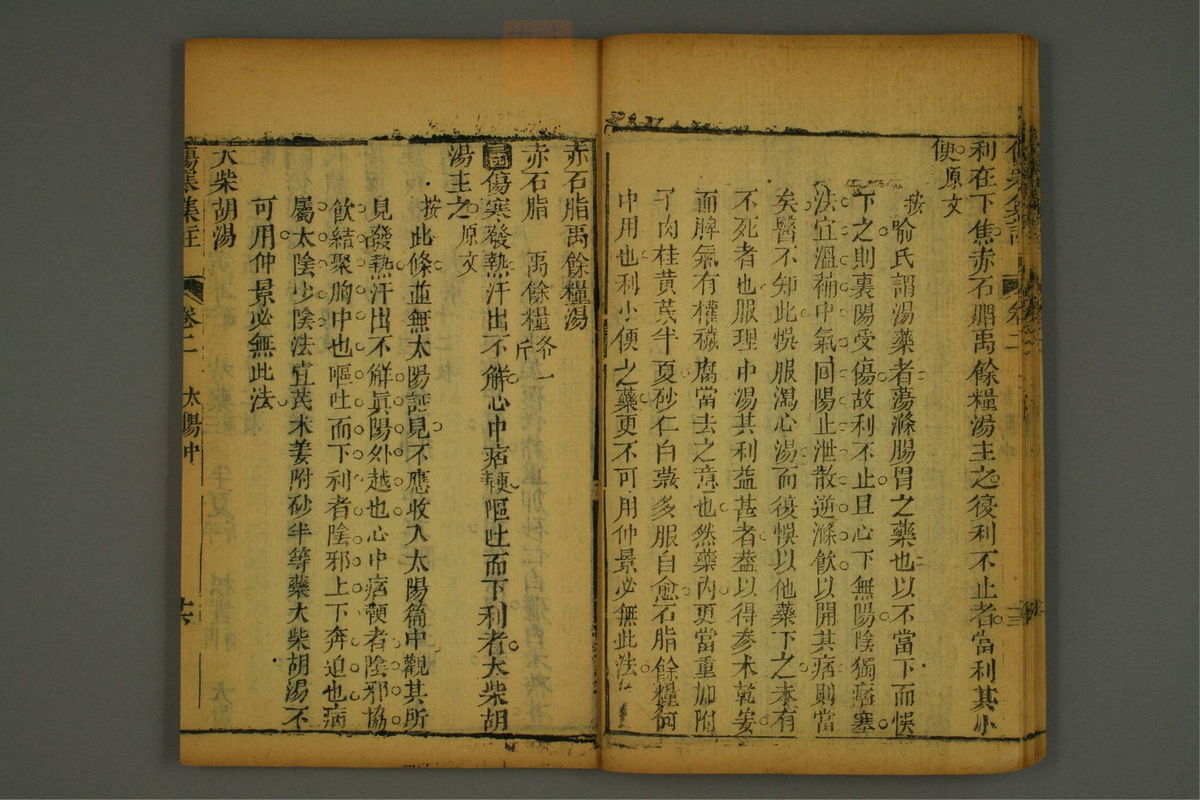 傷寒集註 卷二
利在下焦赤石脂禹餘糧湯主之復利不止者當利其小
便原文
按喻氏謂湯藥者蕩滌腸胃之藥也以不當下而悞
下之則裏陽受傷故利不止且心下無陽陰獨痞塞
法宜溫補中氣囘陽止泄散逆滌飮以開其痞則當
矣醫不知此悞服瀉心湯而復悞以他藥下之未有
不死者也服理中湯其利益甚者葢以得參朮乾姜
而脾氣有權穢腐當去之意也然藥內更當重加附
子肉桂黃芪半夏砂仁白蔻多服自愈石脂餘糧何
中用也利小便之藥更不可用仲景必無此法
赤石脂禹餘糧湯
赤石脂 禹餘糧各一斤
傷寒發熱汗出不解心中痞鞕嘔吐而下利者大柴胡
湯主之原文
按此條並無太陽證見不應收入太陽篇中觀其所
見發熱汗出不解眞陽外越也心中痞鞕者陰邪協
飮結聚胸中也嘔吐而下利者陰邪上下奔迫也病
屬太陰少陰法宜芪朮姜附砂半等藥大柴胡湯不
可用仲景必無此法
大柴胡湯
傷寒集註 卷二 太陽中